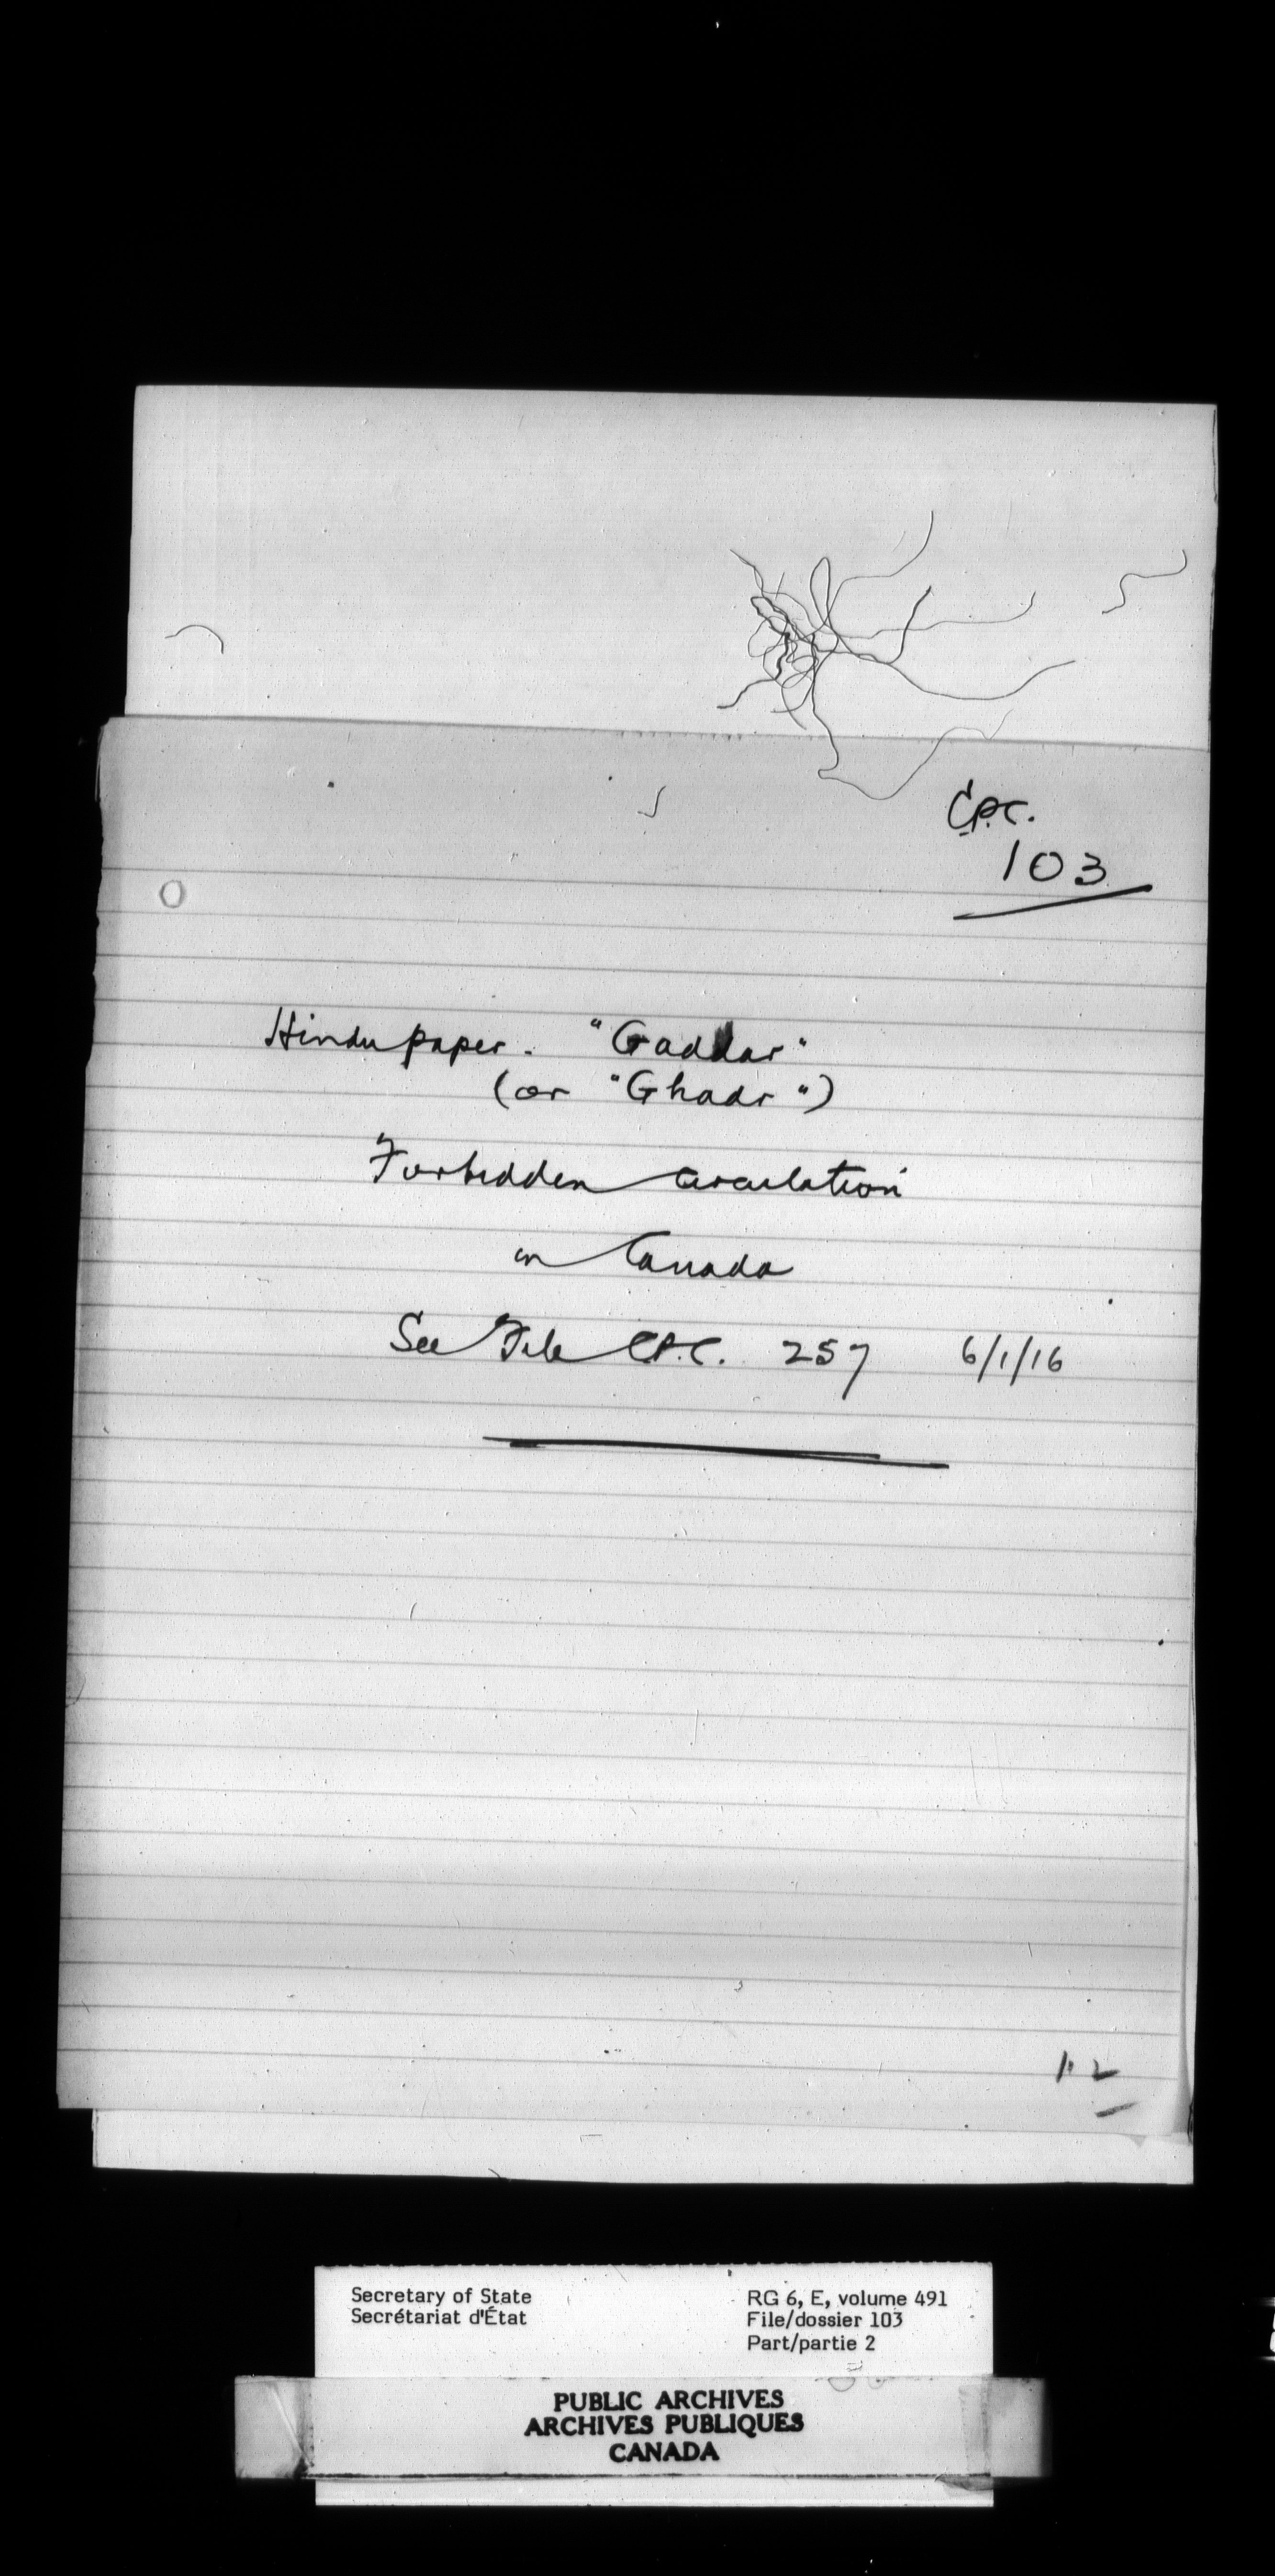 C.P.C.
103
Hindu paper. "Gaddar"
(or "Ghadr")
Forbidden circulation
in Canada
See File C.P.C. 257 6/1/16
Secretary of State
Secrétariat d'État
RG 6, E, volume 491
File/dossier 103
Part/partie 2
PUBLIC ARCHIVES
ARCHIVES PUBLIQUES
CANADA